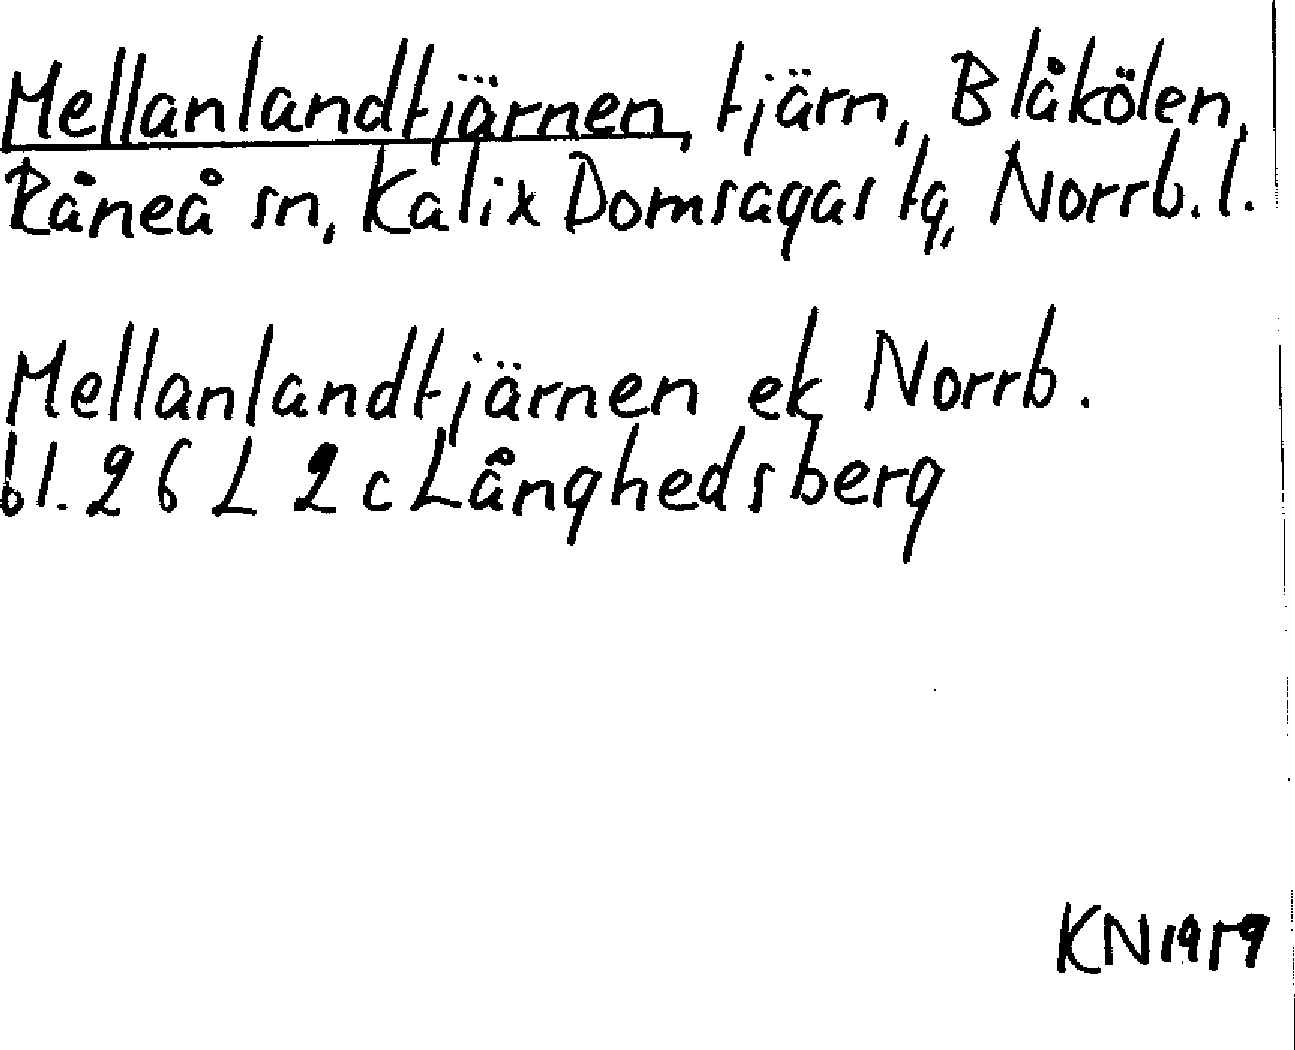 Mellanlandtjärnen, tjärn, Blåkölen,
Råneå sn, Kalix Domsagas tg, Norrb. l.
Mellanlandtjärnen ek Norrb.
bl. 26 L 2 c Långhedsberg
KN 1959